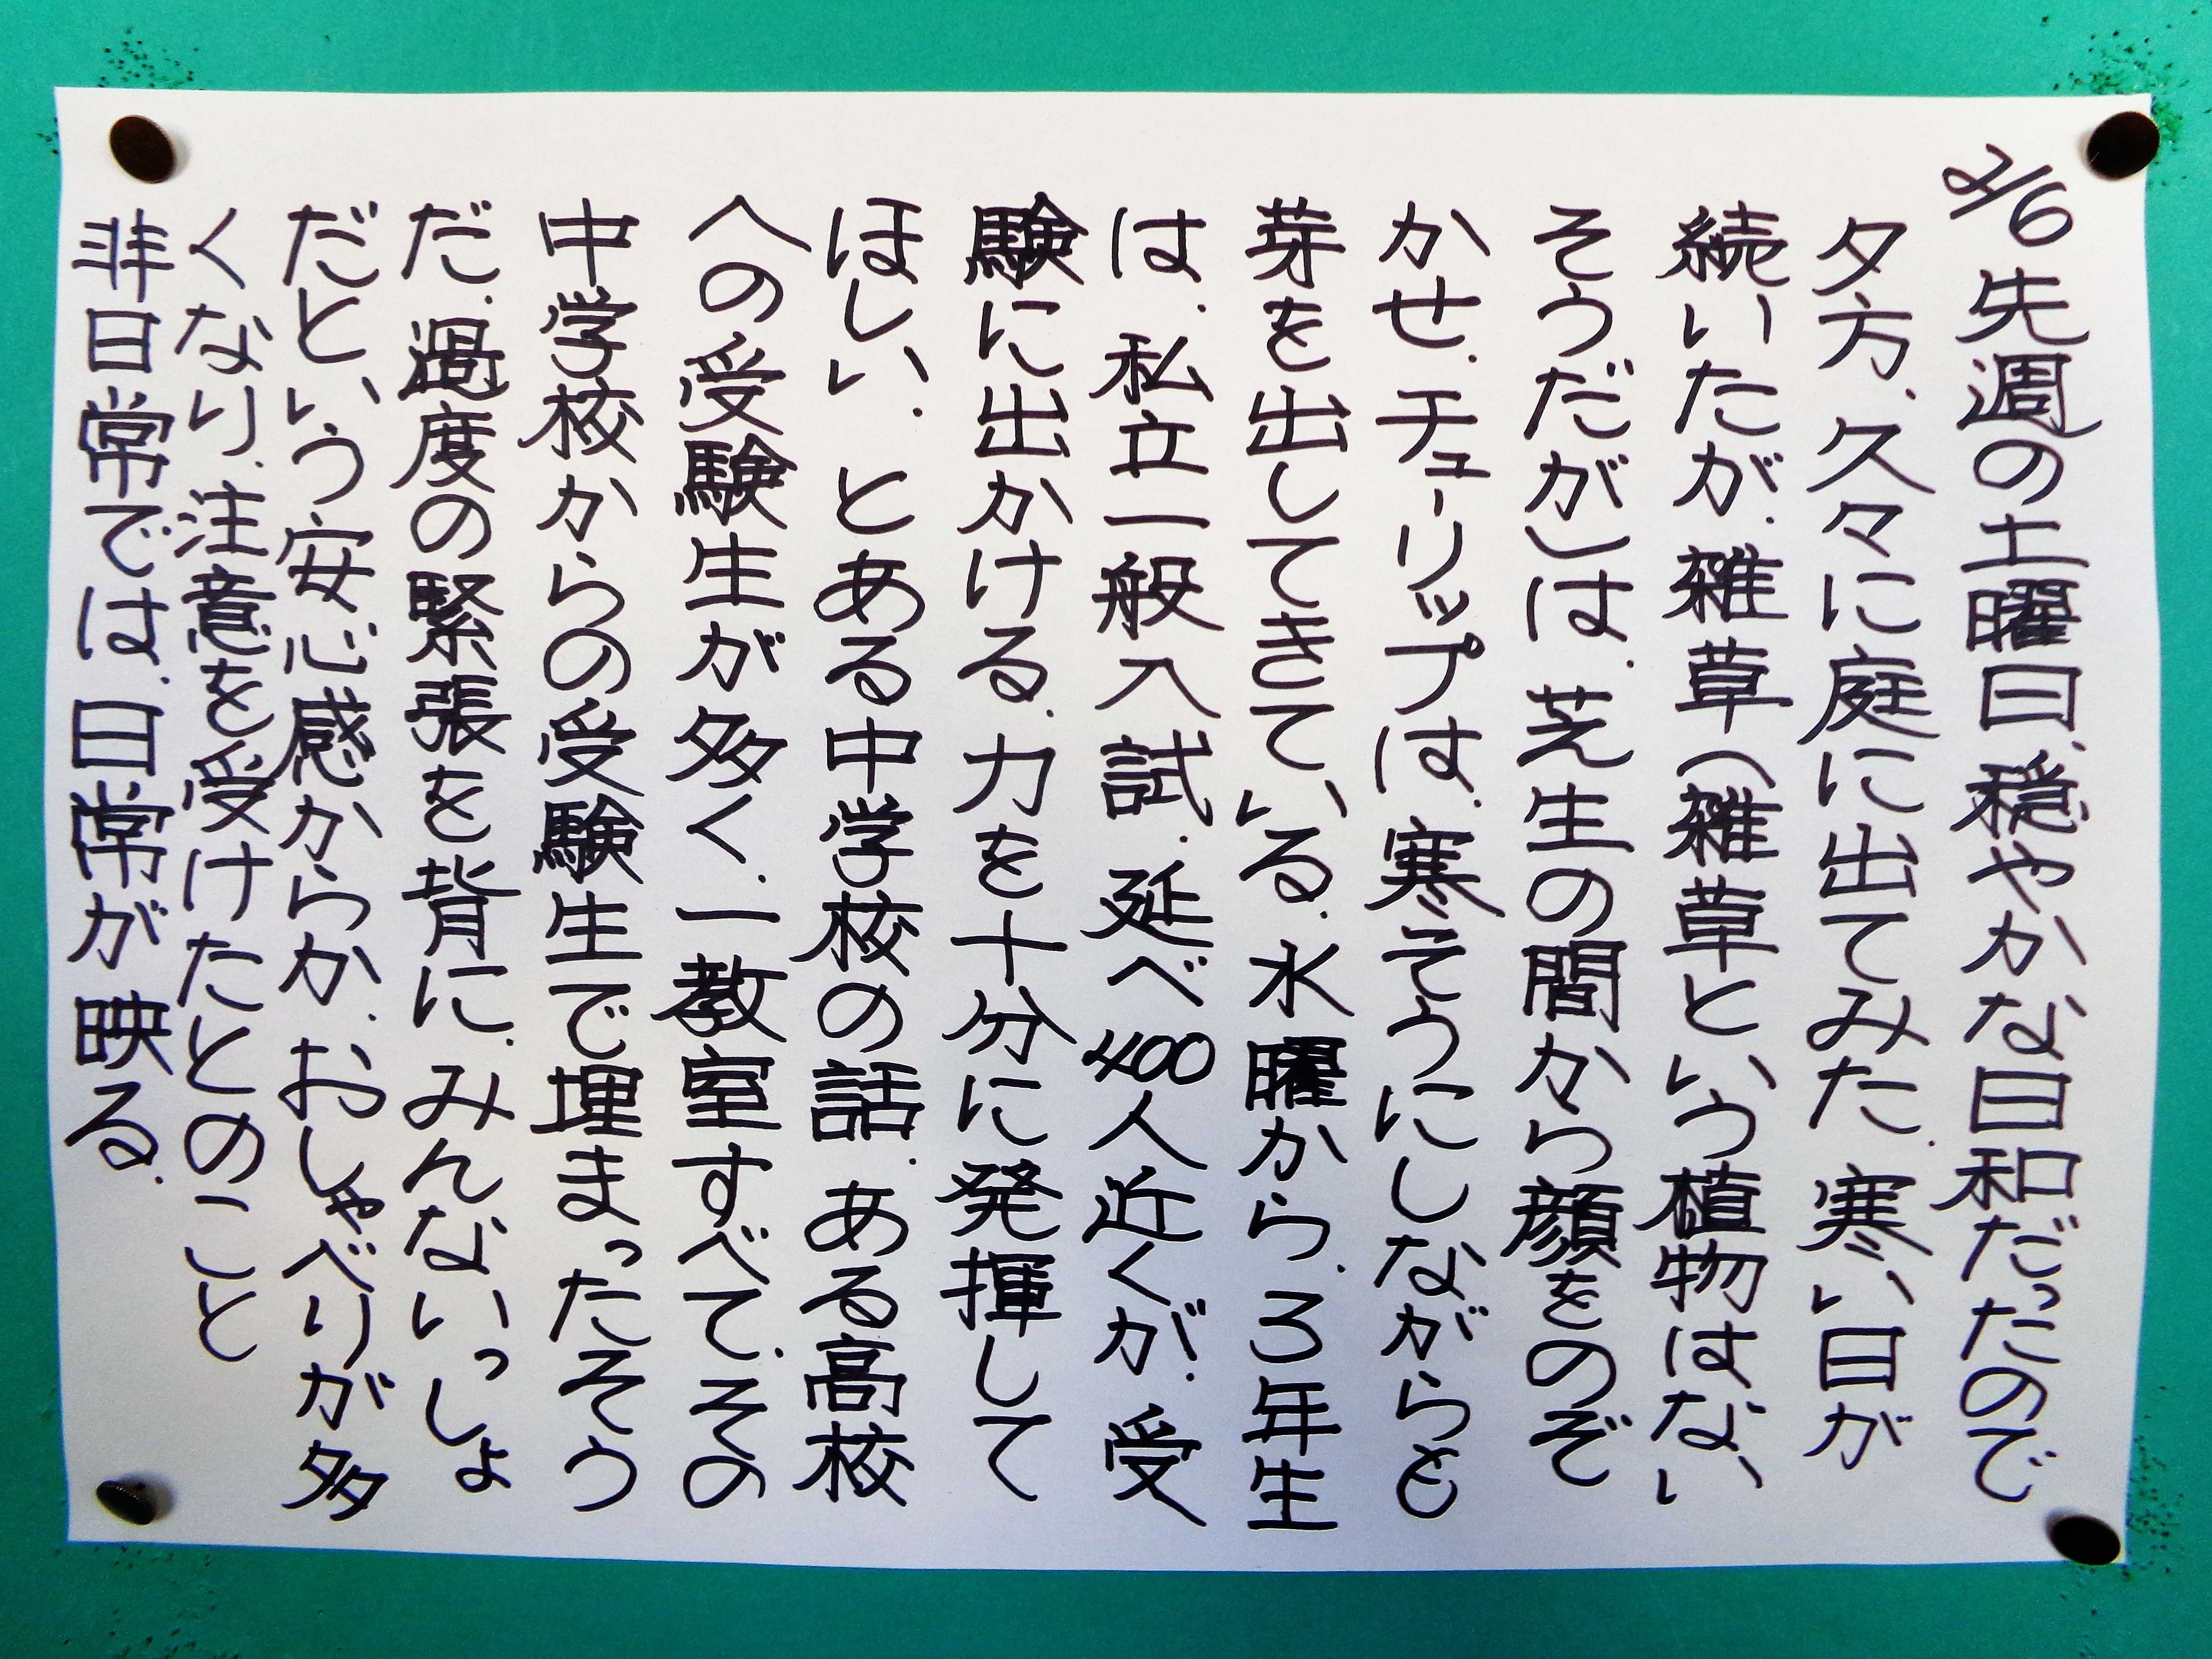 2/6 先週の土曜日、穏やかな日和だったので
夕方、久々に庭に出てみた。寒い日が
続いたが、雑草(雑草という植物はない
そうだが)は、芝生の間から顔をのぞ
かせ、チューリップは、寒そうにしながらも
芽を出してきている。水曜から、3年生
は、私立一般入試、延べ400人近くが、受
験に出かける。力を十分に発揮して
ほしい。とある中学校の話。ある高校
への受験生が多く、一教室すべて、その
中学校からの受験生で埋まったそう
だ。過度の緊張を背に、みんないっしょ
だという安心感からか、おしゃべりが多
くなり、注意を受けたとのこと
非日常では、日常が映る。